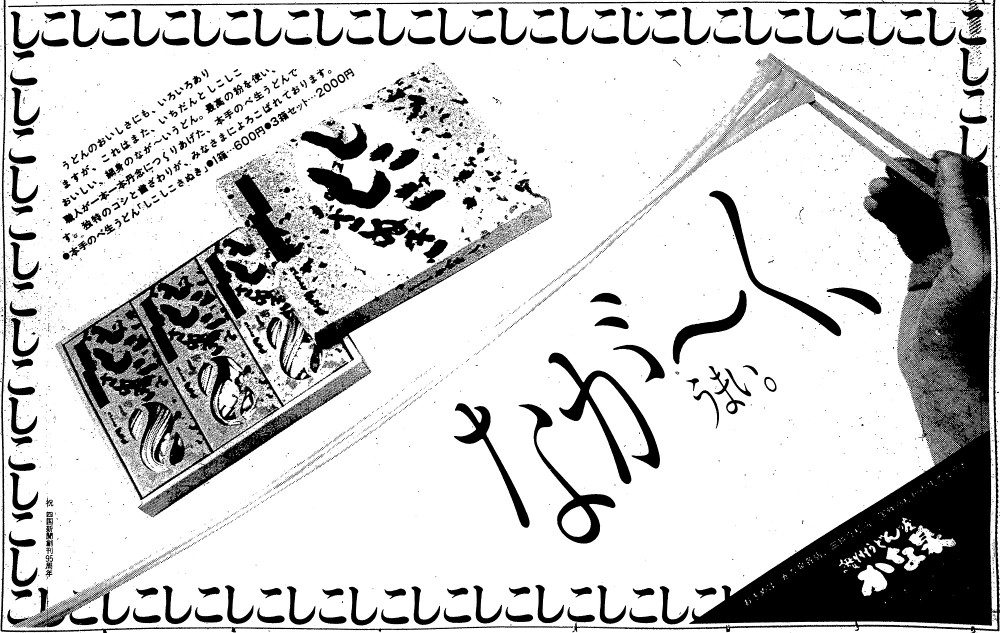 しこしこしこしこしこしこしこしこしこしこしこしこしこしこ
うどんのおいしさにも、いろいろあり
ますが、これはまた、いちだんとしこしこ
おいしい、細身のなが〜いうどん。最高の粉を使い、
職人が一本一本丹念につくりあげた、本手のべ生うどんで
す。独特のコシと歯ざわりが、みなさまによろこばれております。
●本手のべ生うどん「しこしこさぬき」●1箱…600円●3箱セット…2000円
なが〜い
うまい。
祝 四国新聞創刊95周年
しこしこしこしこしこしこしこしこしこしこ